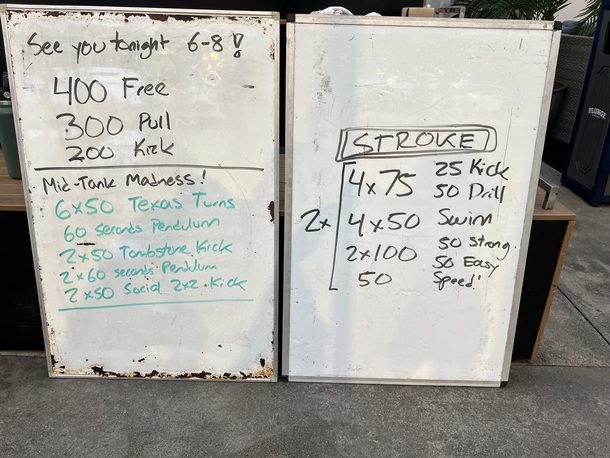 See you tonight 6-8!
400 Free
300 Pull
200 Kick
Mid-Tank Madness!
6x50 Texas Turns
60 seconds Pendulum
2x50 Tombstone Kick
2x60 seconds Pendulum
2x50 Social 2x2 Kick
STROKE
2x
4x75 25 Kick
50 Drill
4x50 Swim
2x100 50 Strong
50 Easy
50 Speed!
PLUNGE